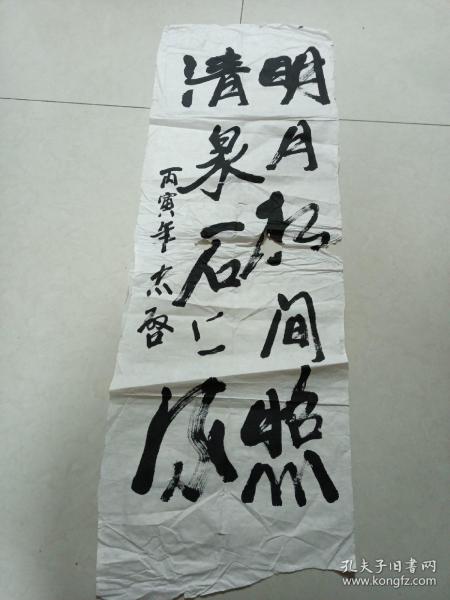 明月松间照
清泉石上流
丙寅年 杰啓
孔夫子旧书网
www.kongfz.com